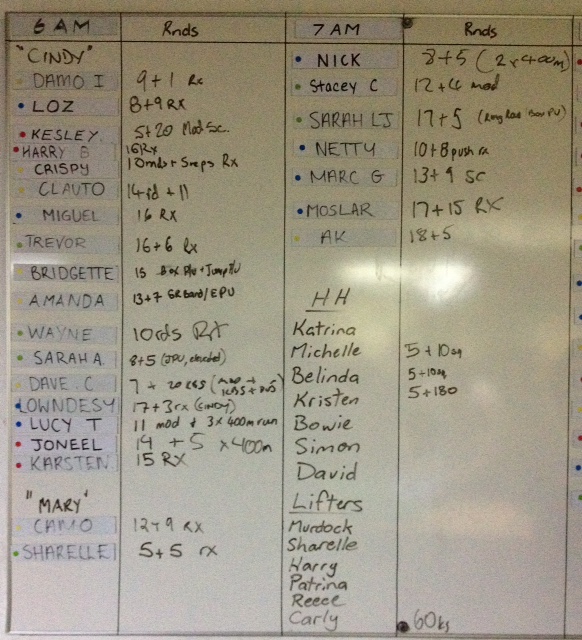 6 AM Rnds
"CINDY"
DAMO I 9+1 Rx
LOZ 8+9 RX
KESLEY 5+20 Mod Sc.
HARRY B 16 Rx
CRISPY 10rnds + 5reps Rx
CLAUTO 14 rd + 11
MIGUEL 16 RX
TREVOR 16+6 Rx
BRIDGETTE 15 Box P/U + Jump P/U
AMANDA 13+7 GR Band/EPU
WAYNE 10rds RX
SARAH A. 8+5
DAVE C 7 + 20
LOWNDESY 17+3rx (CINDY)
LUCY T 11 mod + 3x400m run
JONEEL 14 +5 x400m
KARSTEN 15 RX
"MARY"
CAMO 12+9 RX
SHARELLE 5+5 rx
7 AM Rnds
NICK 8+5 (2x400m)
Stacey C 12+4 mod
SARAH LJ 17+5
NETTY 10+8 push rx
MARC G 13+9 SC
MOSLAR 17+15 RX
AK 18+5
HH
Katrina
Michelle 5+10
Belinda 5+10
Kristen 5+180
Bowie
Simon
David
Lifters
Murdock
Sharelle
Harry
Patrina
Reece
Carly 60kg